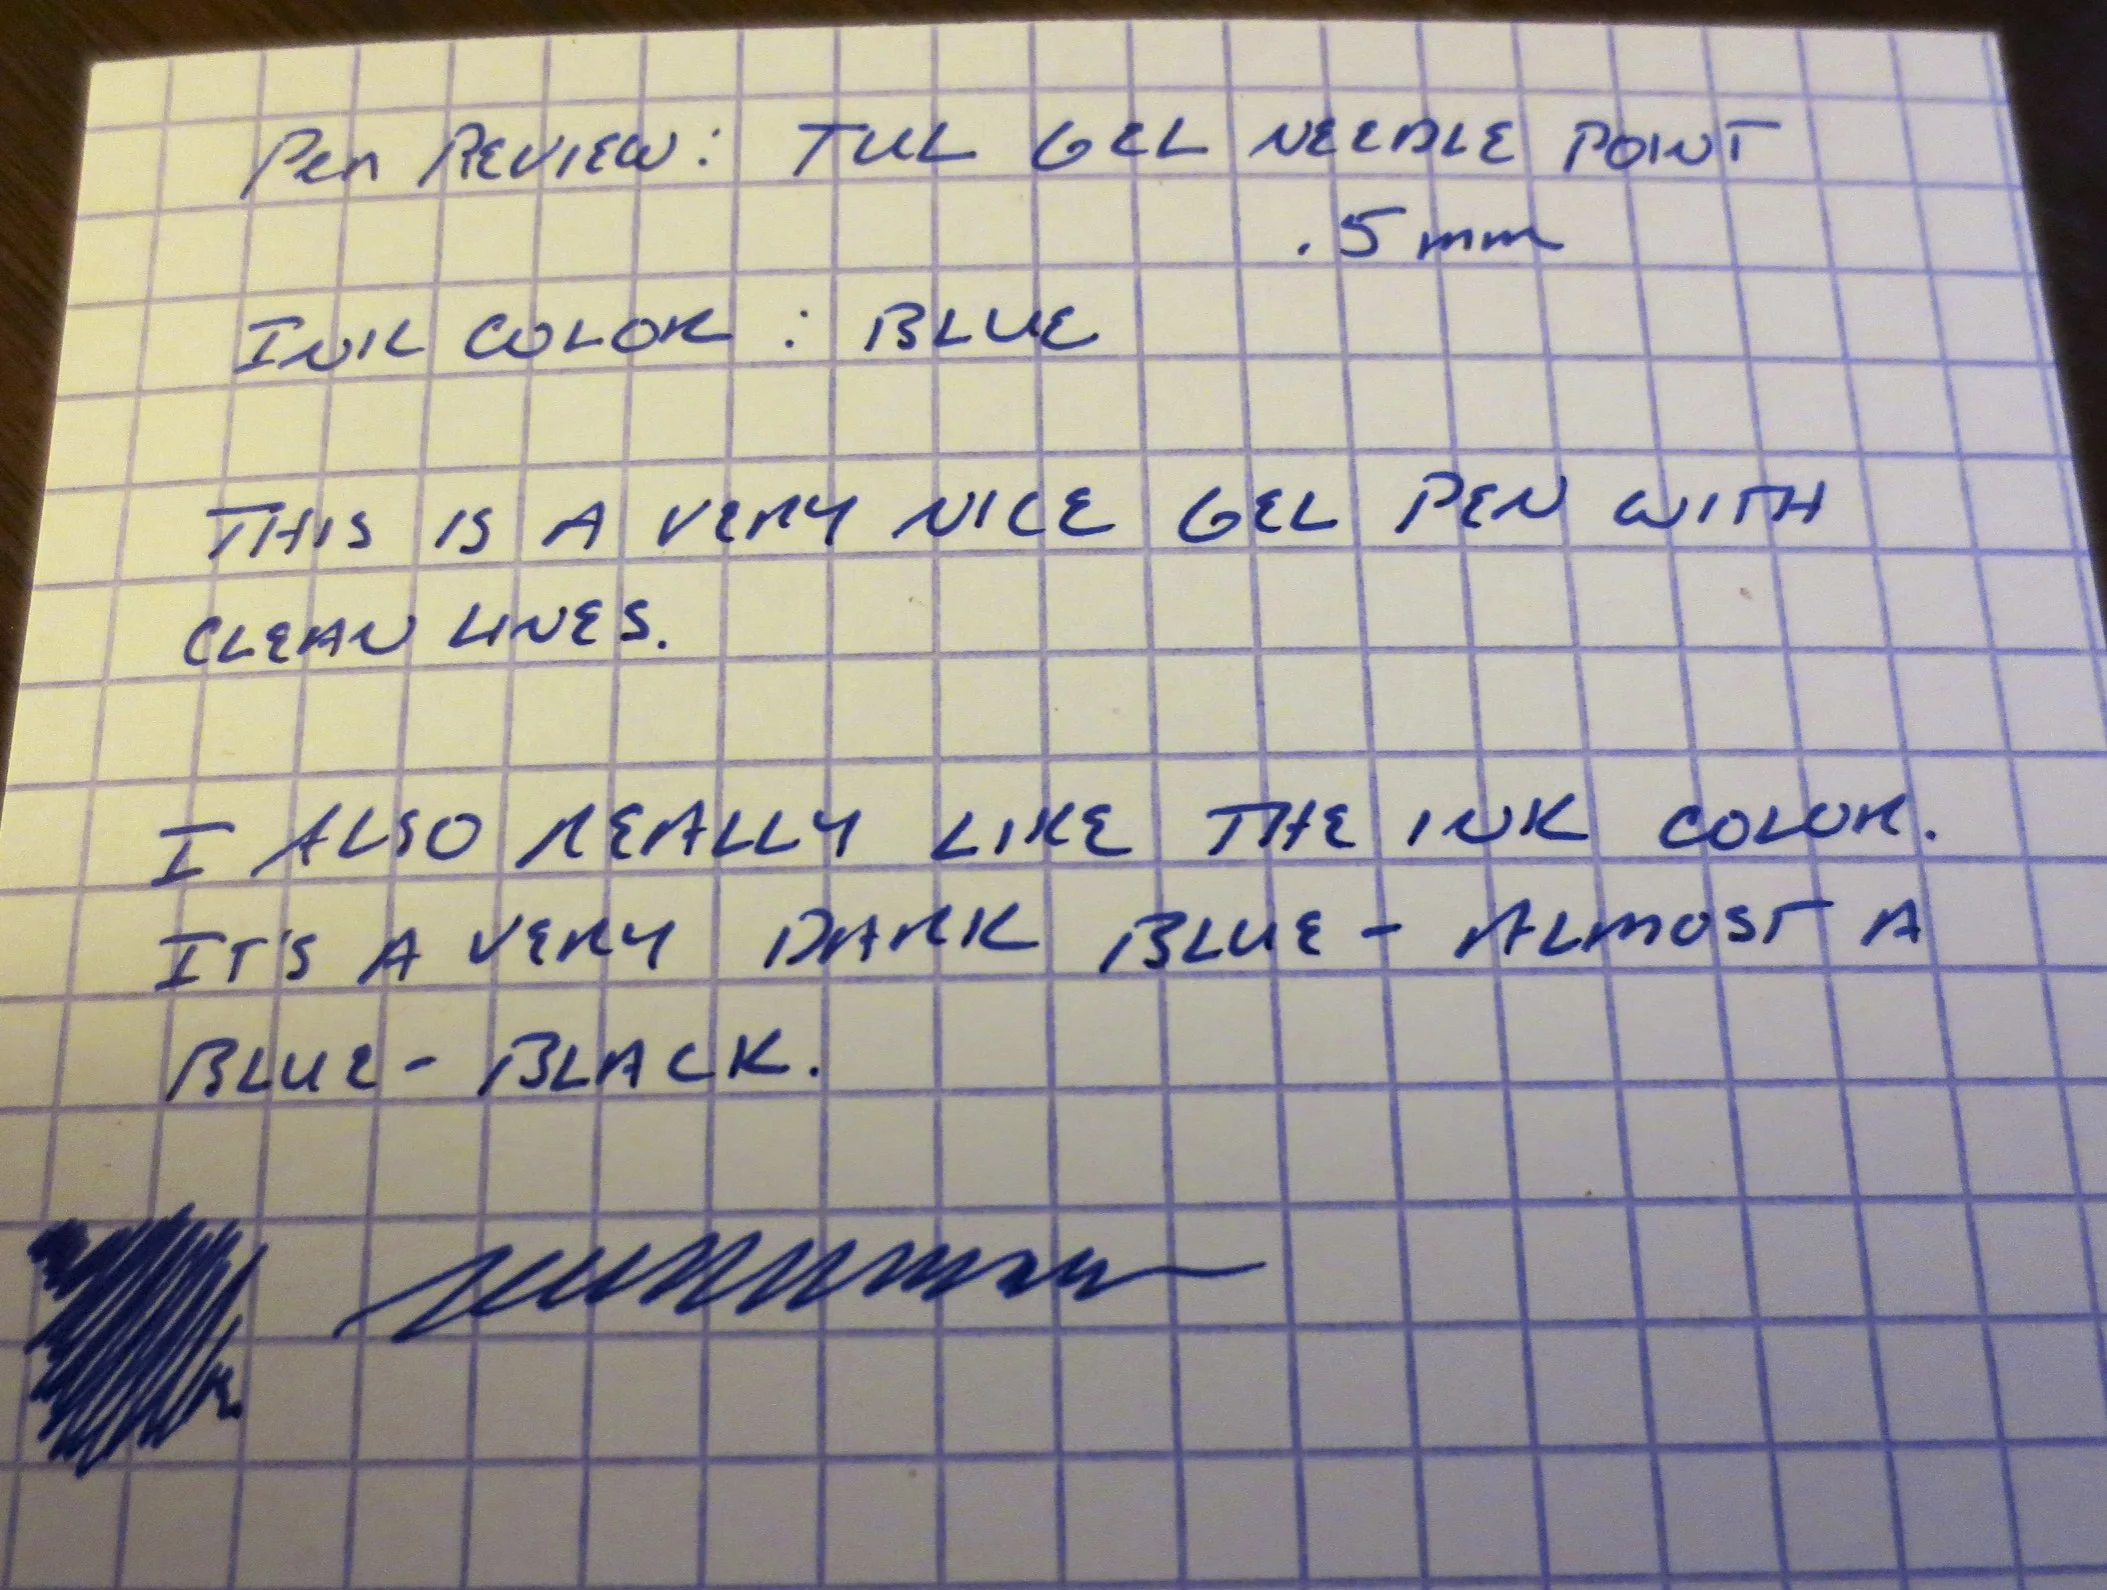 Pen Review: TUL GEL NEEDLE POINT
.5mm
INK COLOR: BLUE
THIS IS A VERY NICE GEL PEN WITH
CLEAN LINES.
I ALSO REALLY LIKE THE INK COLOR.
IT'S A VERY DARK BLUE - ALMOST A
BLUE-BLACK.